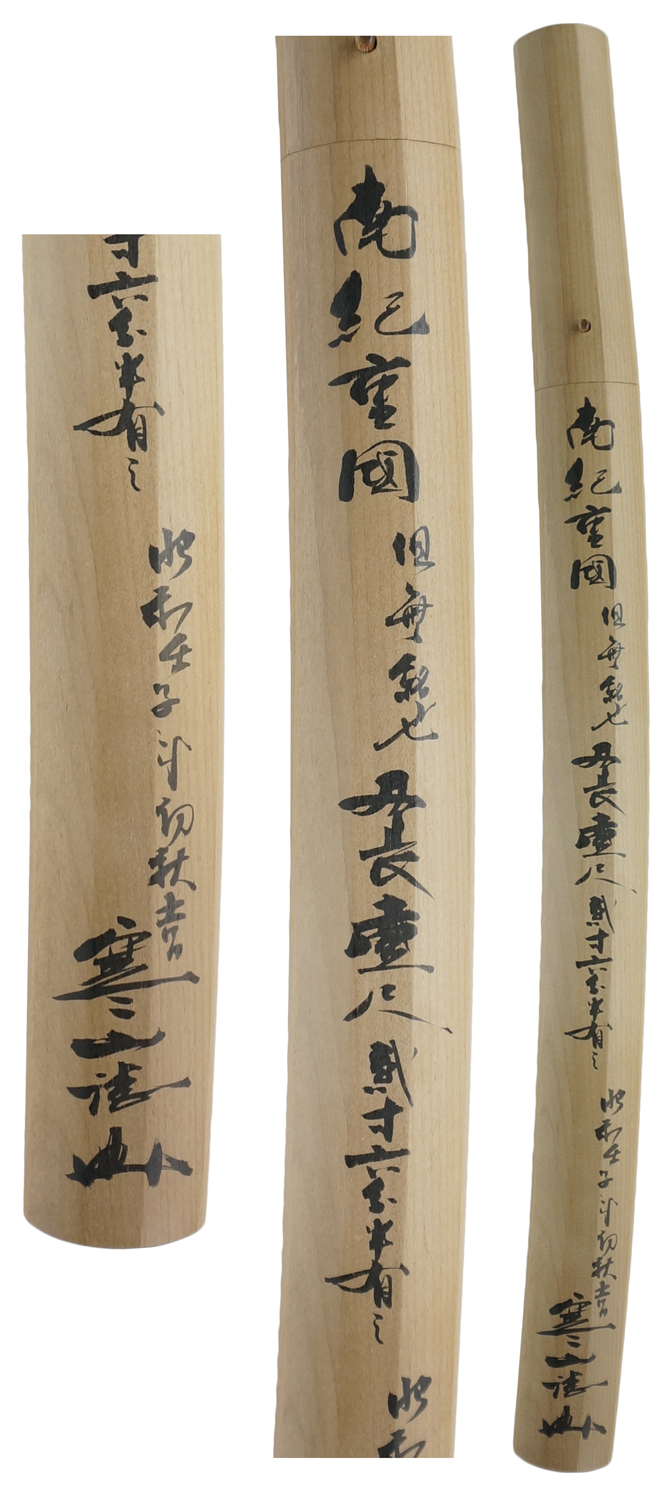 南紀重國
但無銘也
刃長壹尺貳寸六分半有之
昭和壬子年初秋吉日
寒山誌
南紀重國
但無銘也
刃長壹尺貳寸六分半有之
昭和
寸六分半有之
昭和壬子年初秋吉日
寒山誌